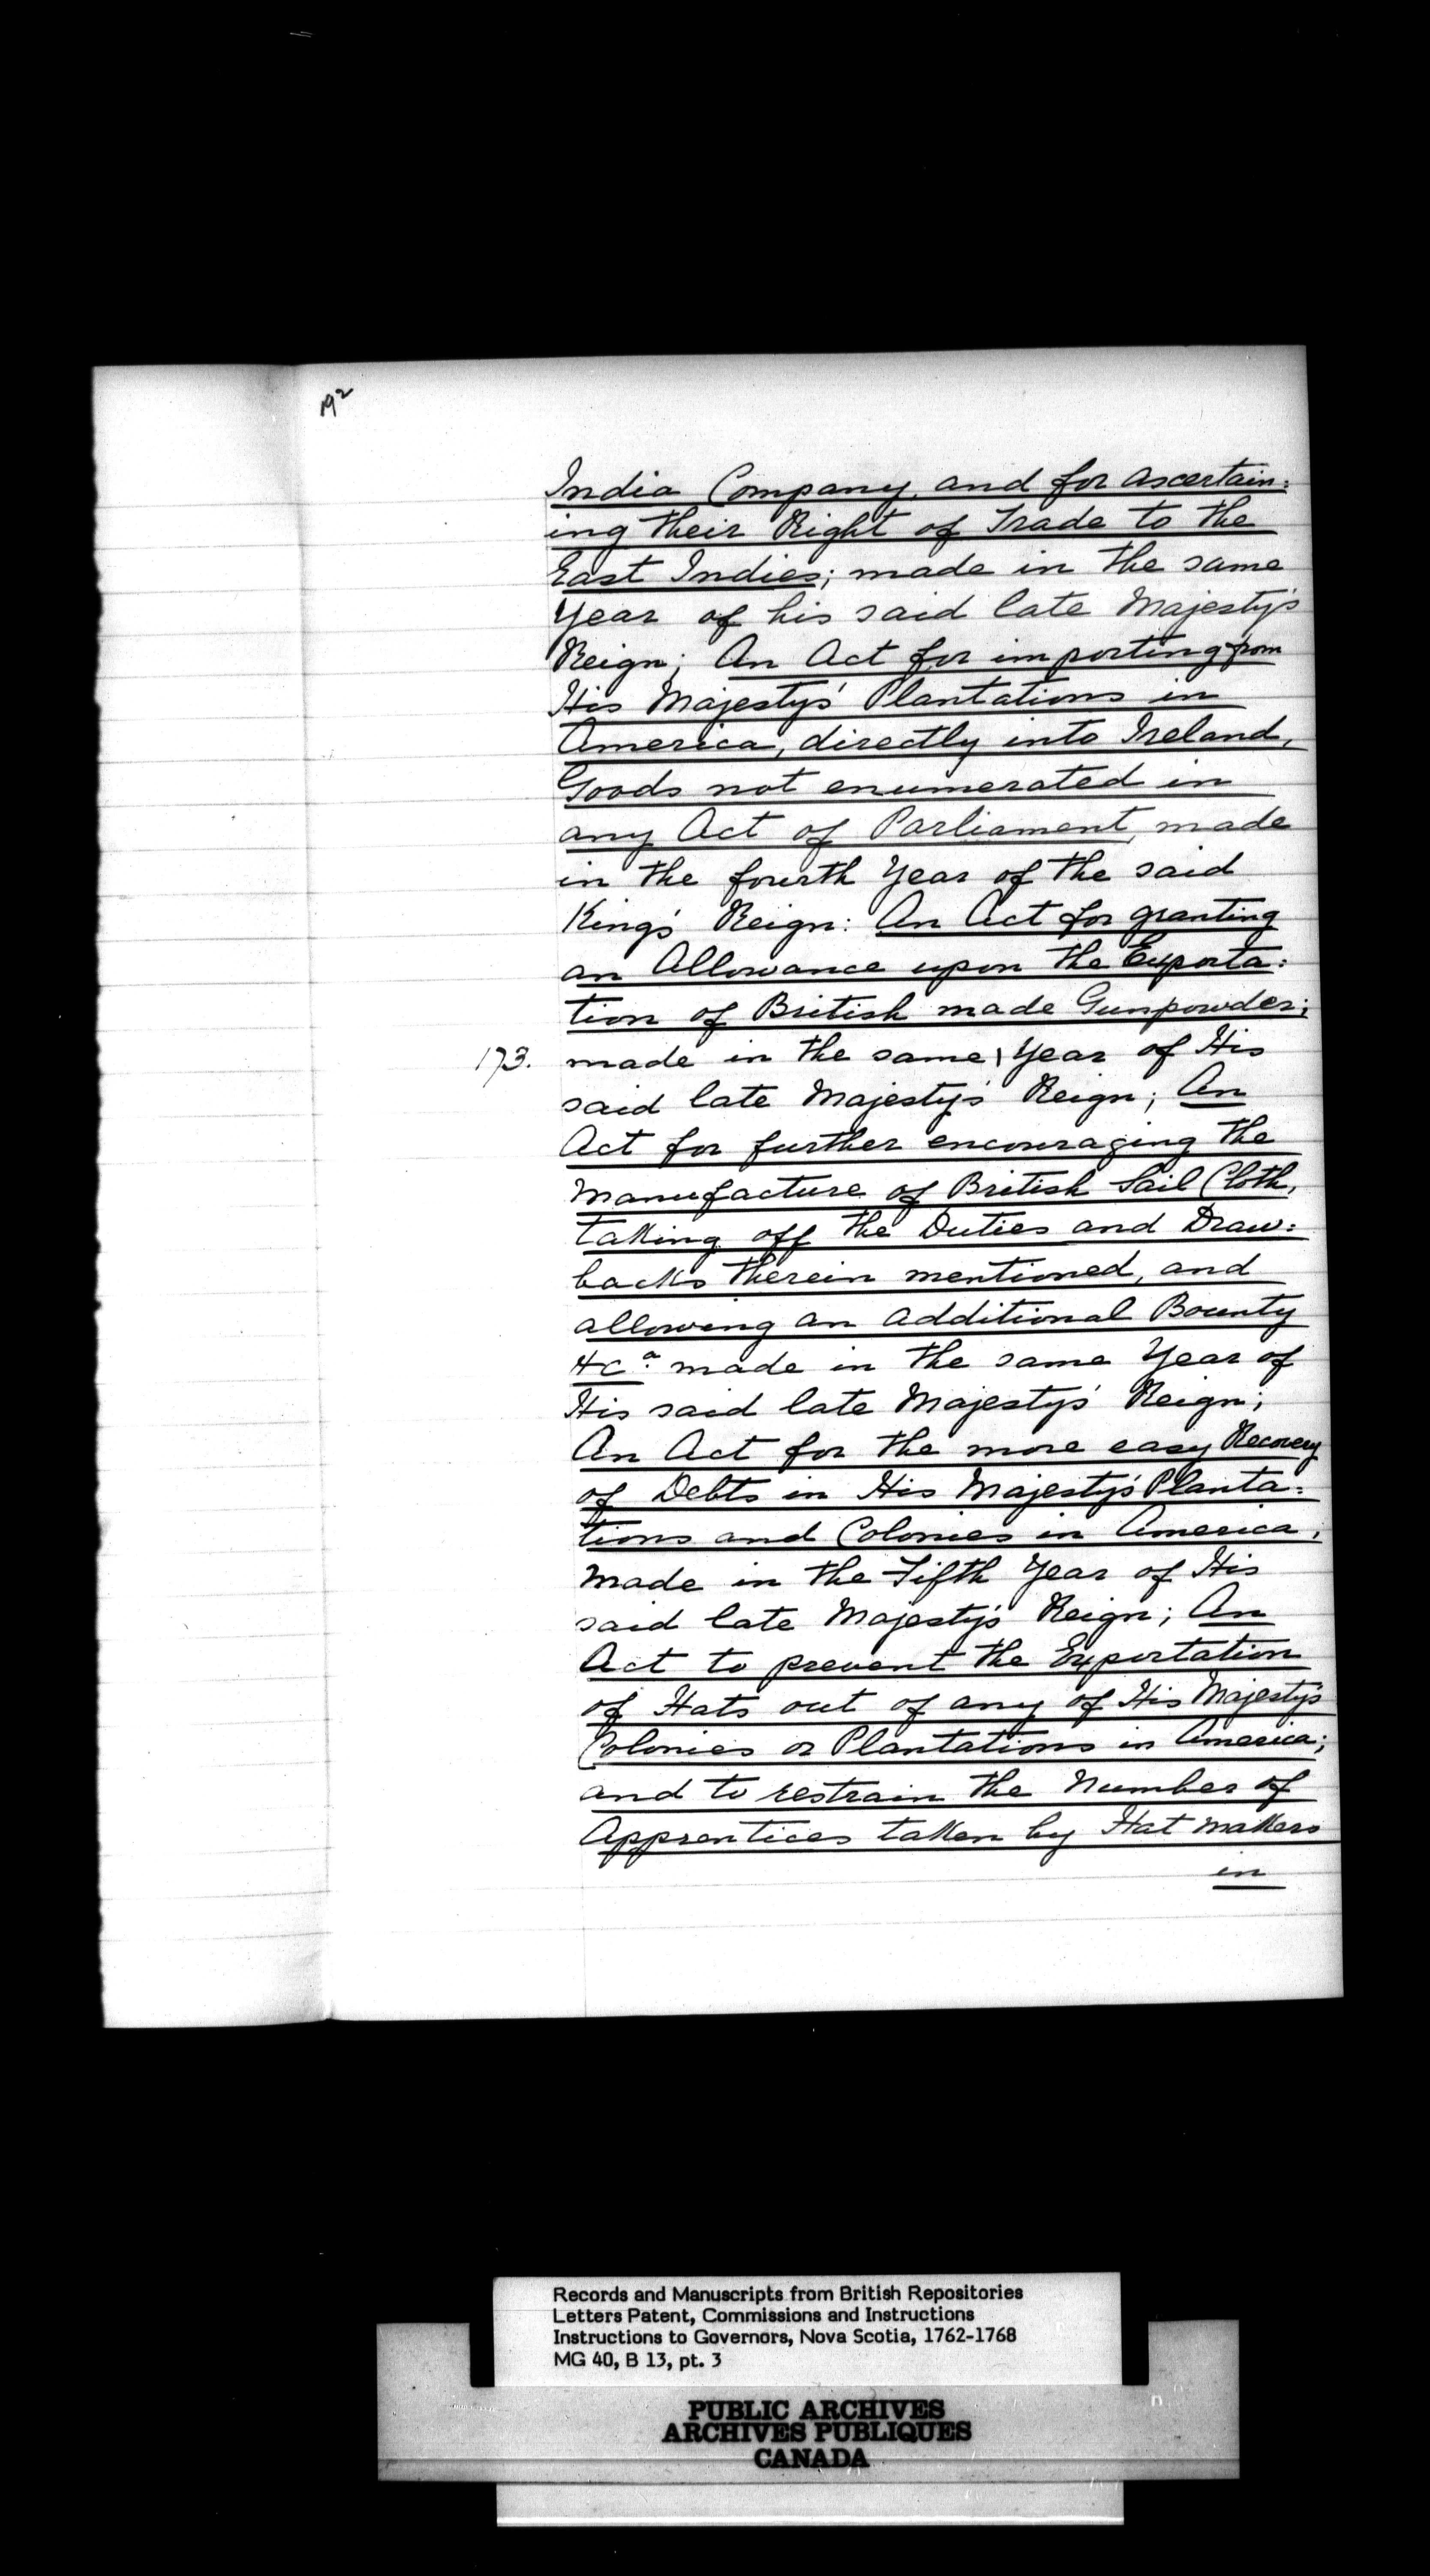 192
India Company, and for ascertain:
ing their Right of Trade to the
East Indies; made in the same
Year of his said late Majesty's
Reign; An Act for importing from
His Majesty's Plantations in
America, directly into Ireland,
Goods not enumerated in
any Act of Parliament, made
in the fourth Year of the said
King's Reign: An Act for granting
an Allowance upon the Exporta:
tion of British made Gunpowder;
173. made in the same | Year of His
said late Majesty's Reign; An
Act for further encouraging the
Manufacture of British Sail Cloth,
taking off the Duties and Draw:
backs therein mentioned, and
allowing an additional Bounty
&cª. made in the same Year of
His said late Majesty's Reign;
An Act for the more easy Recovery
of Debts in His Majesty's Planta:
tions and Colonies in America,
made in the Fifth Year of His
said late Majesty's Reign; An
Act to prevent the Exportation
of Hats out of any of His Majesty's
Colonies or Plantations in America;
and to restrain the Number of
Apprentices taken by Hat makers
in
Records and Manuscripts from British Repositories
Letters Patent, Commissions and Instructions
Instructions to Governors, Nova Scotia, 1762-1768
MG 40, B 13, pt. 3
PUBLIC ARCHIVES
ARCHIVES PUBLIQUES
CANADA